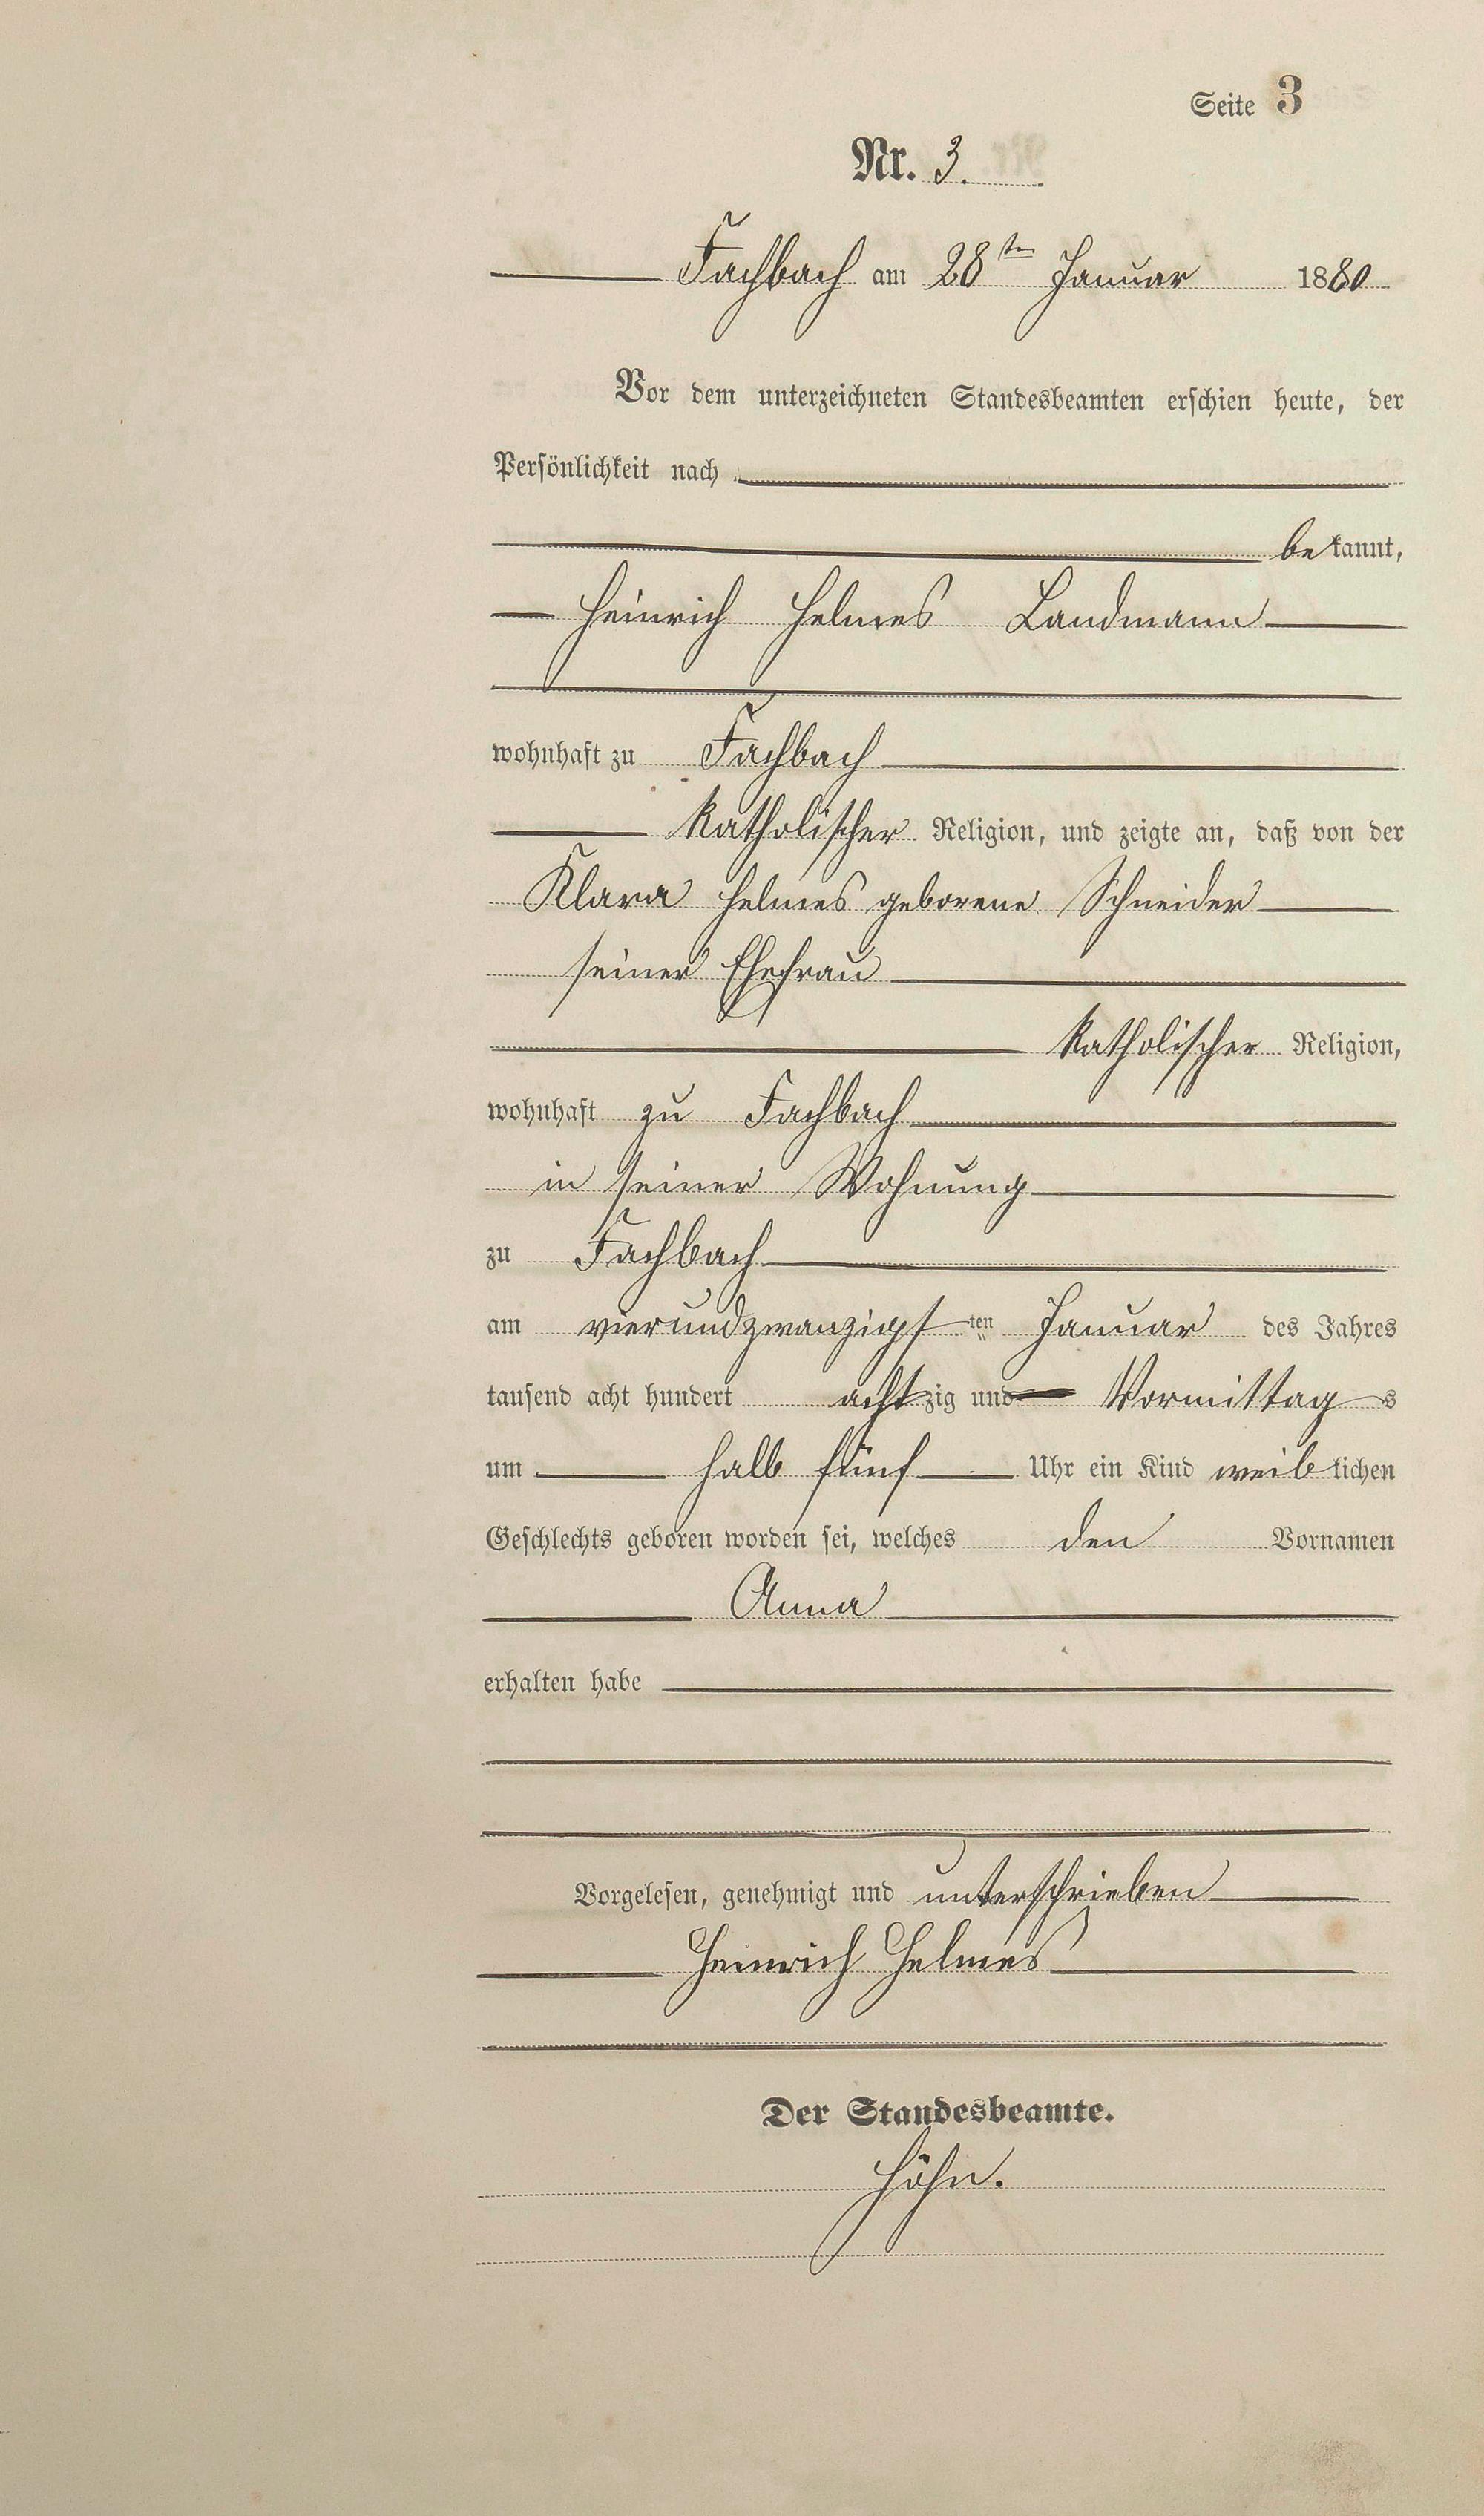 Seite 3
Nr. 3.
Fachbach am 28ten Januar 1880
Vor dem unterzeichneten Standesbeamten erschien heute, der
Persönlichkeit nach
bekannt,
Heinrich Helmes Landmann
wohnhaft zu Fachbach
katholischer Religion, und zeigte an, daß von der
Klara Helmes geborene Schneider
seiner Ehefrau
katholischer Religion,
wohnhaft zu Fachbach
in seiner Wohnung
zu Fachbach
am vierundzwanzigsten Januar des Jahres
tausend acht hundert achtzig und Vormittags
um halb fünf Uhr ein Kind weiblichen
Geschlechts geboren worden sei, welches den Vornamen
Anna
erhalten habe
Vorgelesen, genehmigt und unterschrieben
Heinrich Helmes
Der Standesbeamte.
Höhn.